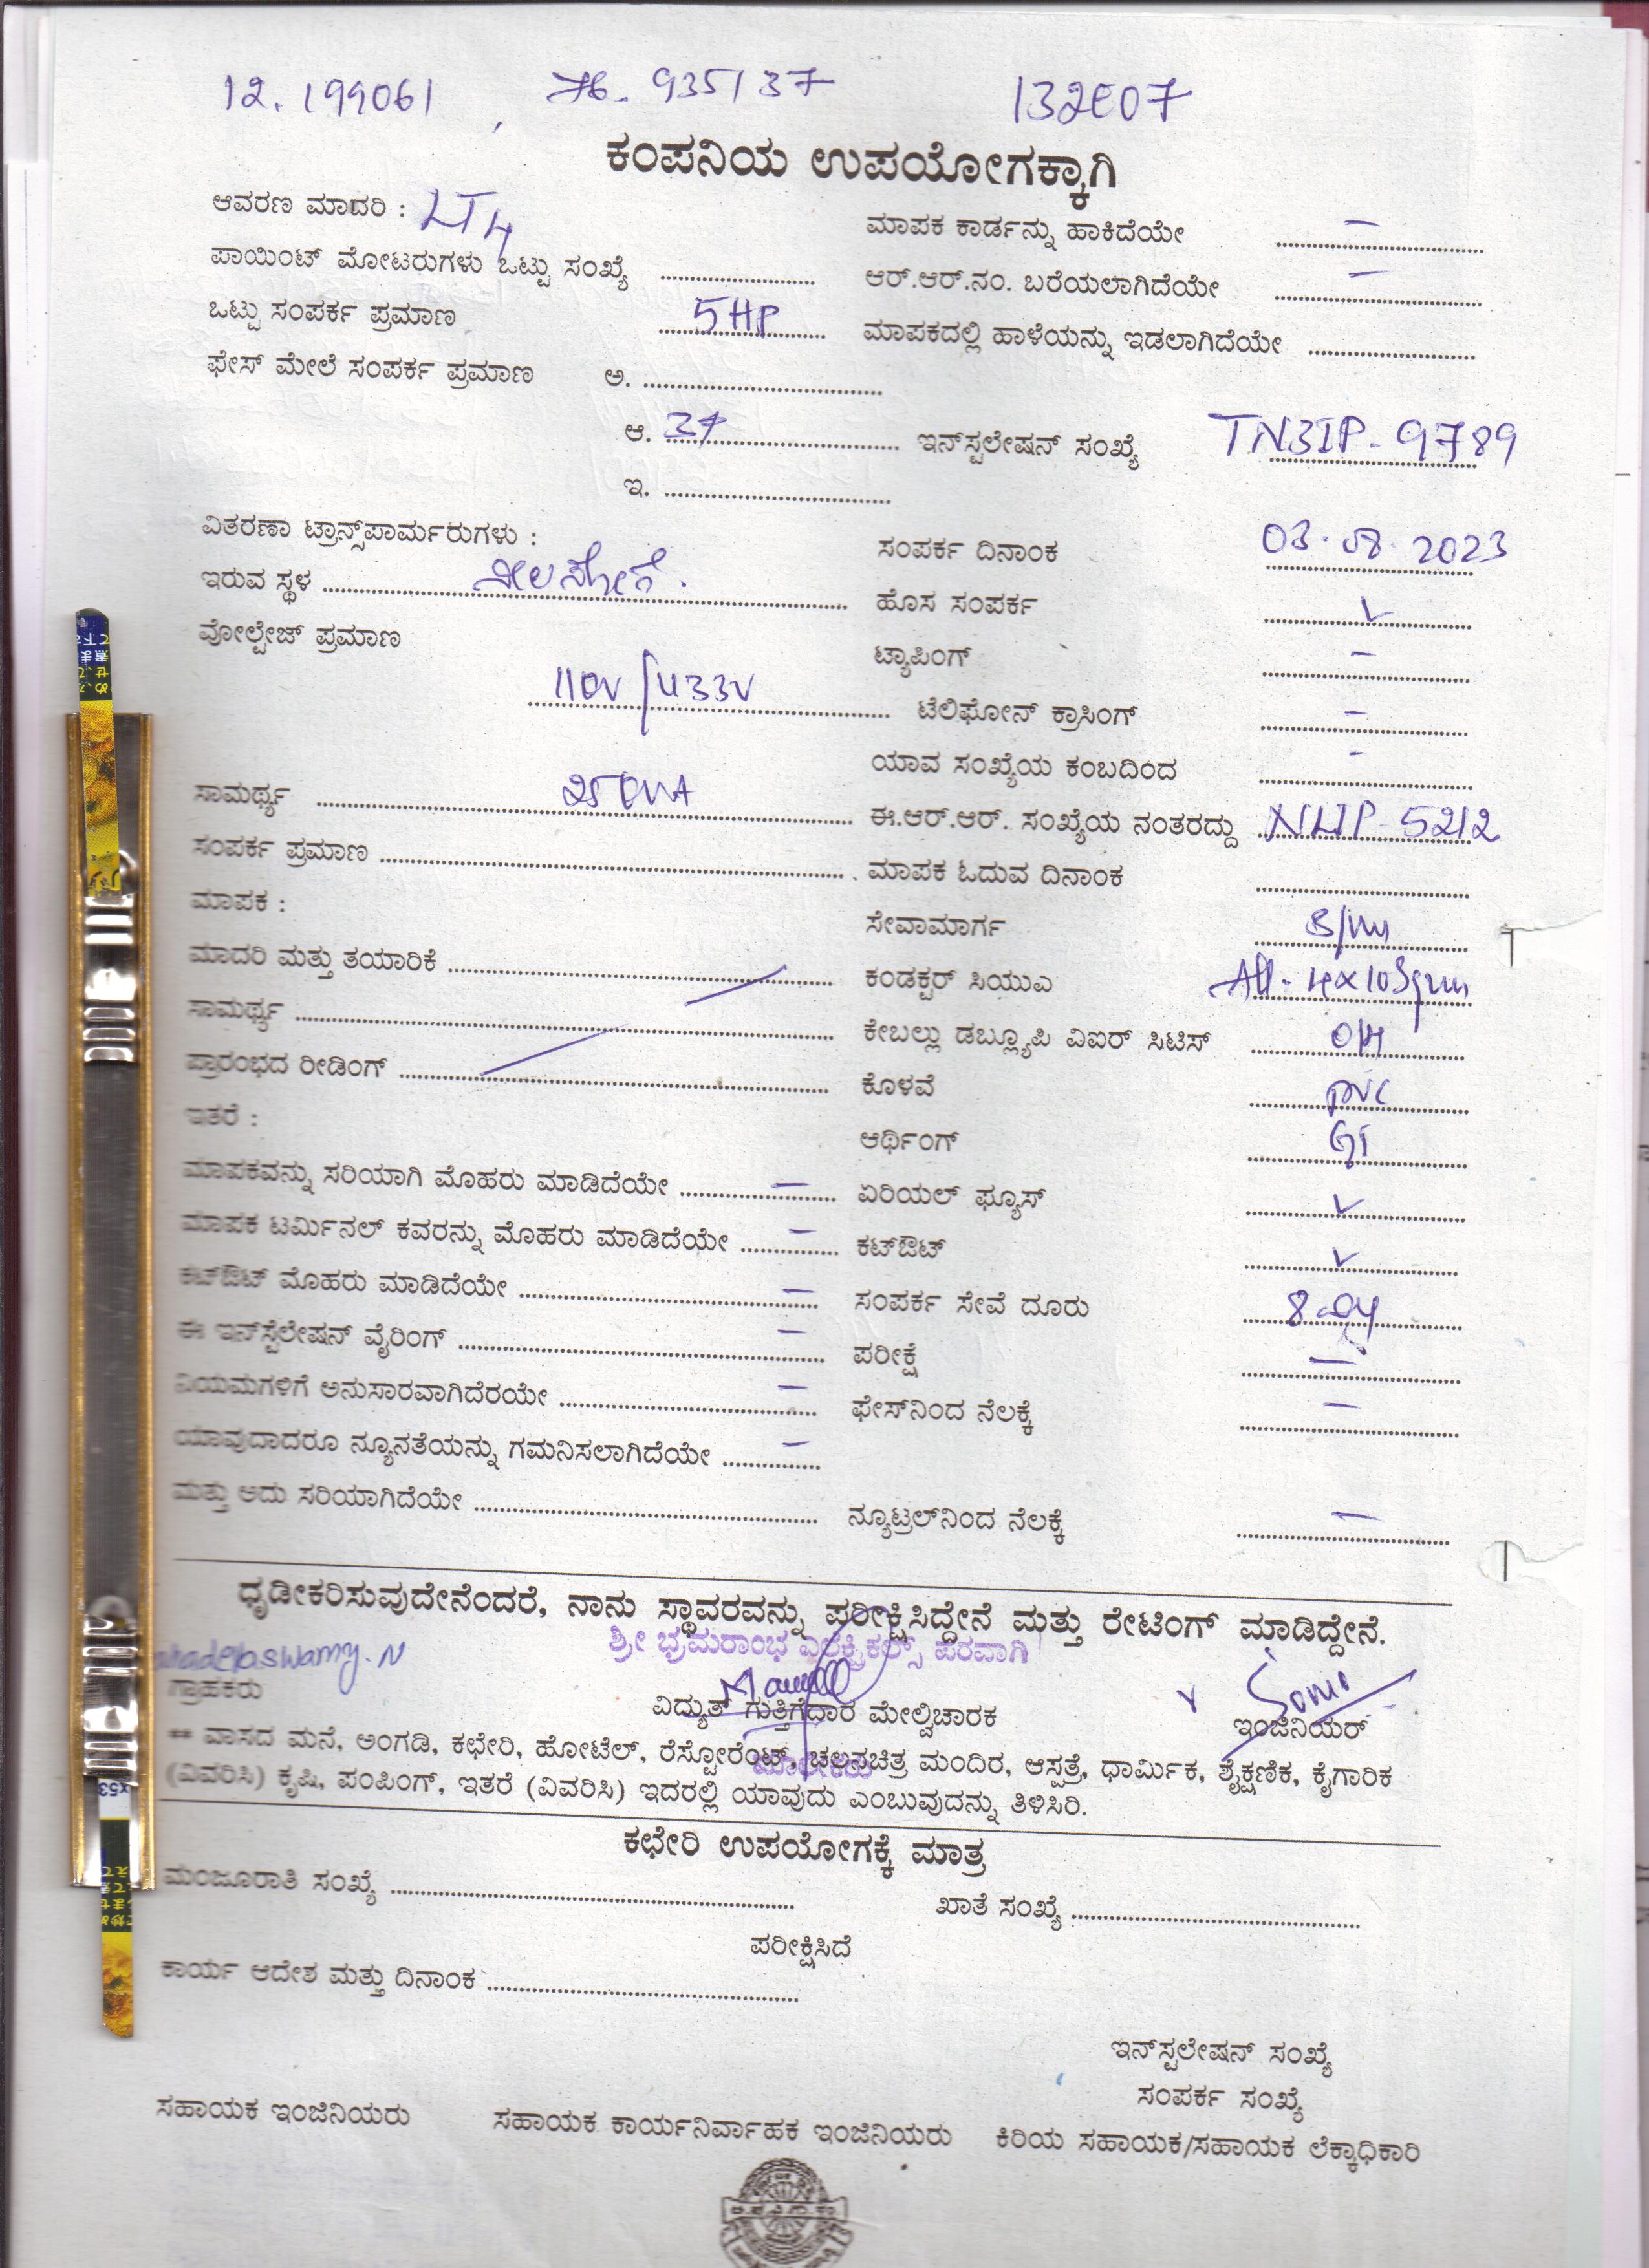 12.199061 76.935137 132E07
ಕಂಪನಿಯ ಉಪಯೋಗಕ್ಕಾಗಿ
ಆವರಣ ಮಾದರಿ : LT4
ಮಾಪಕ ಕಾರ್ಡನ್ನು ಹಾಕಿದೆಯೇ –
ಪಾಯಿಂಟ್ ಮೋಟರುಗಳು ಒಟ್ಟು ಸಂಖ್ಯೆ
ಆರ್.ಆರ್.ನಂ. ಬರೆಯಲಾಗಿದೆಯೇ –
ಒಟ್ಟು ಸಂಪರ್ಕ ಪ್ರಮಾಣ 5HP
ಮಾಪಕದಲ್ಲಿ ಹಾಳೆಯನ್ನು ಇಡಲಾಗಿದೆಯೇ
ಫೇಸ್ ಮೇಲೆ ಸಂಪರ್ಕ ಪ್ರಮಾಣ ಅ.
ಆ. 37 ಇನ್‌ಸ್ಟಲೇಷನ್ ಸಂಖ್ಯೆ TN3IP-9789
ಇ.
ವಿತರಣಾ ಟ್ರಾನ್ಸ್‌ಪಾರ್ಮರುಗಳು :
ಸಂಪರ್ಕ ದಿನಾಂಕ 03.08.2023
ಇರುವ ಸ್ಥಳ
ಹೊಸ ಸಂಪರ್ಕ ✓
ವೋಲ್ಟೇಜ್ ಪ್ರಮಾಣ
ಟ್ಯಾಪಿಂಗ್ –
110V/433V ಟೆಲಿಫೋನ್ ಕ್ರಾಸಿಂಗ್ –
ಯಾವ ಸಂಖ್ಯೆಯ ಕಂಬದಿಂದ –
ಸಾಮರ್ಥ್ಯ 25KVA
ಈ.ಆರ್.ಆರ್. ಸಂಖ್ಯೆಯ ನಂತರದ್ದು NLIP-5212
ಸಂಪರ್ಕ ಪ್ರಮಾಣ
ಮಾಪಕ ಓದುವ ದಿನಾಂಕ
ಮಾಪಕ :
ಸೇವಾಮಾರ್ಗ
ಮಾದರಿ ಮತ್ತು ತಯಾರಿಕೆ
ಕಂಡಕ್ಟರ್ ಸಿಯುಎ All-4x10Sqmm
ಸಾಮರ್ಥ್ಯ
ಕೇಬಲ್ಲು ಡಬ್ಲ್ಯೂಪಿ ವಿಐರ್ ಸಿಟಿಸ್ O/H
ಪ್ರಾರಂಭದ ರೀಡಿಂಗ್
ಕೊಳವೆ PVC
ಇತರೆ :
ಆರ್ಥಿಂಗ್ GI
ಮಾಪಕವನ್ನು ಸರಿಯಾಗಿ ಮೊಹರು ಮಾಡಿದೆಯೇ –
ಏರಿಯಲ್ ಫ್ಯೂಸ್ ✓
ಮಾಪಕ ಟರ್ಮಿನಲ್ ಕವರನ್ನು ಮೊಹರು ಮಾಡಿದೆಯೇ –
ಕಟ್‌ಔಟ್ ✓
ಕಟ್‌ಔಟ್ ಮೊಹರು ಮಾಡಿದೆಯೇ –
ಸಂಪರ್ಕ ಸೇವೆ ದೂರು
ಈ ಇನ್‌ಸ್ಟೆಲೇಷನ್ ವೈರಿಂಗ್ –
ಪರೀಕ್ಷೆ –
ನಿಯಮಗಳಿಗೆ ಅನುಸಾರವಾಗಿದೆರಯೇ –
ಫೇಸ್‌ನಿಂದ ನೆಲಕ್ಕೆ –
ಯಾವುದಾದರೂ ನ್ಯೂನತೆಯನ್ನು ಗಮನಿಸಲಾಗಿದೆಯೇ –
ಮತ್ತು ಅದು ಸರಿಯಾಗಿದೆಯೇ
ನ್ಯೂಟ್ರಲ್‌ನಿಂದ ನೆಲಕ್ಕೆ –
ಧೃಡೀಕರಿಸುವುದೇನೆಂದರೆ, ನಾನು ಸ್ಥಾವರವನ್ನು ಪರೀಕ್ಷಿಸಿದ್ದೇನೆ ಮತ್ತು ರೇಟಿಂಗ್ ಮಾಡಿದ್ದೇನೆ.
ಶ್ರೀ ಭ್ರಮರಾಂಭ ಎಲೆಕ್ಟ್ರಿಕಲ್ಸ್ ಪರವಾಗಿ
ಗ್ರಾಹಕರು
ವಿದ್ಯುತ್ ಗುತ್ತಿಗೆದಾರ ಮೇಲ್ವಿಚಾರಕ
ಇಂಜಿನಿಯರ್
** ವಾಸದ ಮನೆ, ಅಂಗಡಿ, ಕಛೇರಿ, ಹೋಟೆಲ್, ರೆಸ್ಟೋರೆಂಟ್, ಚಲನಚಿತ್ರ ಮಂದಿರ, ಆಸ್ಪತ್ರೆ, ಧಾರ್ಮಿಕ, ಶೈಕ್ಷಣಿಕ, ಕೈಗಾರಿಕ
(ವಿವರಿಸಿ) ಕೃಷಿ, ಪಂಪಿಂಗ್, ಇತರೆ (ವಿವರಿಸಿ) ಇದರಲ್ಲಿ ಯಾವುದು ಎಂಬುವುದನ್ನು ತಿಳಿಸಿರಿ.
ಕಛೇರಿ ಉಪಯೋಗಕ್ಕೆ ಮಾತ್ರ
ಮಂಜೂರಾತಿ ಸಂಖ್ಯೆ
ಖಾತೆ ಸಂಖ್ಯೆ
ಪರೀಕ್ಷಿಸಿದೆ
ಕಾರ್ಯ ಆದೇಶ ಮತ್ತು ದಿನಾಂಕ
ಇನ್‌ಸ್ಟಲೇಷನ್ ಸಂಖ್ಯೆ
ಸಂಪರ್ಕ ಸಂಖ್ಯೆ
ಸಹಾಯಕ ಇಂಜಿನಿಯರು ಸಹಾಯಕ ಕಾರ್ಯನಿರ್ವಾಹಕ ಇಂಜಿನಿಯರು ಕಿರಿಯ ಸಹಾಯಕ/ಸಹಾಯಕ ಲೆಕ್ಕಾಧಿಕಾರಿ